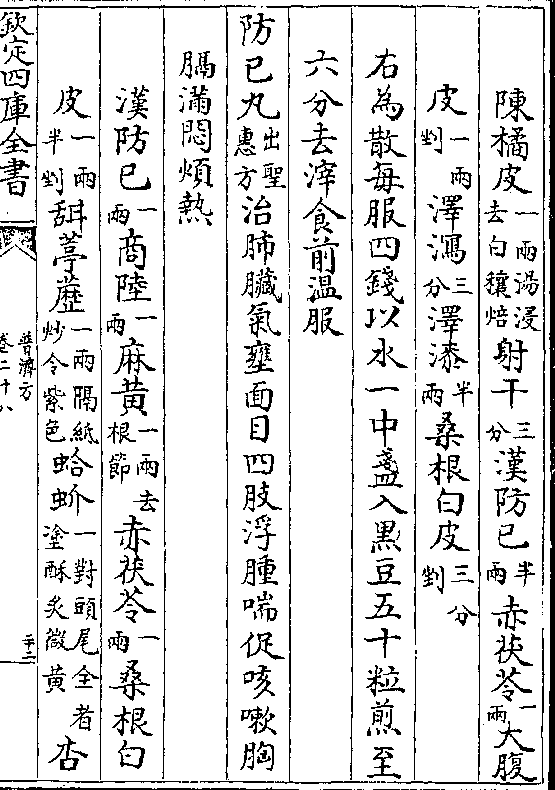 陳橘皮一兩湯浸去白穰焙射干三分漢防已半兩赤茯苓一兩大腹
皮一兩剉澤瀉三分澤漆半兩桑根白皮三分剉
右為散每服四錢以水一中盞入黒豆五十粒煎至
六分去滓食前温服
防已丸出聖惠方治肺臟氣壅面目四肢浮腫喘促咳嗽胸
膈滿悶煩熱
漢防已一兩商陸一兩麻黄一兩去根節赤茯苓一兩桑根白
皮一兩半剉甜葶藶一兩隔紙炒令紫色蛤蚧一對頭尾全者塗酥炙微黄杏
欽定四庫全書
普濟方
卷二十八
三十二